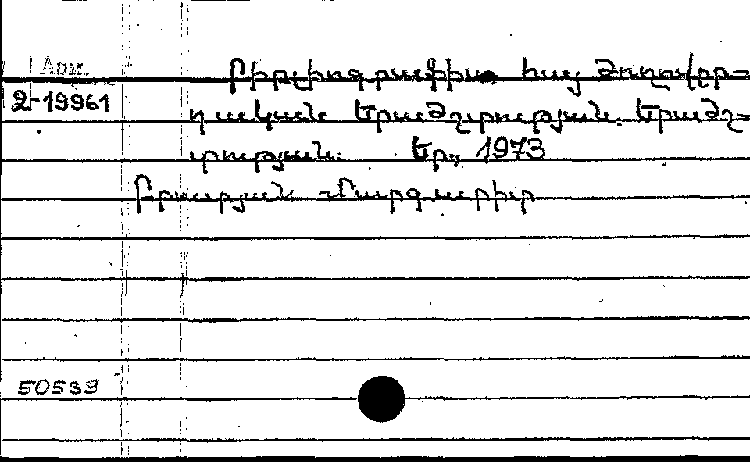 Арм.
2-19961
Բիբլիոգրաֆիա հայ ժողովըր=
դական երաժշտության. Երաժշ=
տություն. Եր., 1973
Բրուտյան Մարգարիտ
50539